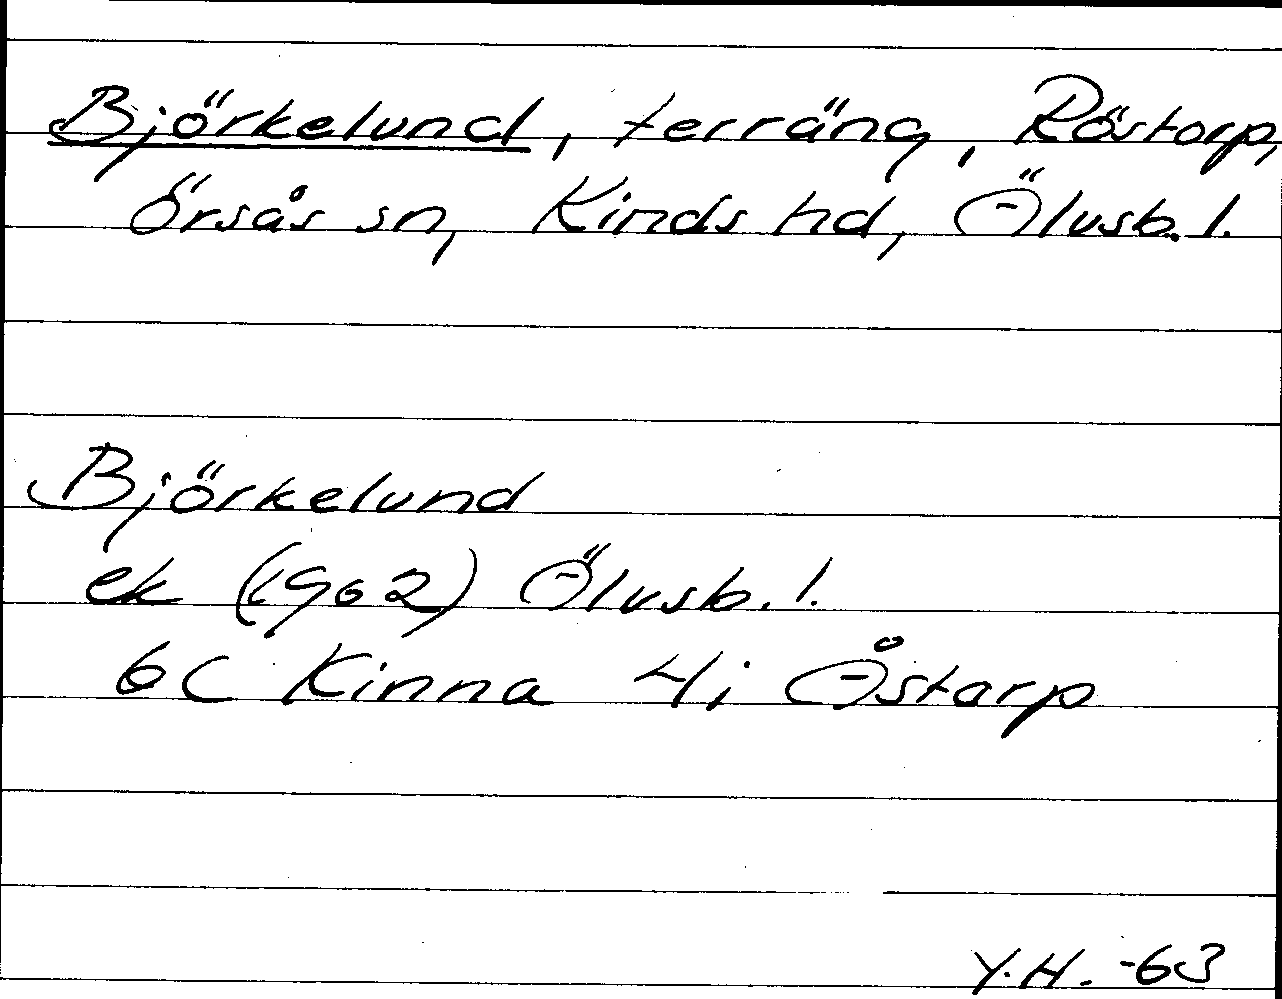 Björkelund, terräng, Röstorp,
Örsås sn, Kinds hd, Älvsb. l.
Björkelund
ek (1962) Älvsb. l.
6C Kinna 4i Åstarp
Y.H. -63